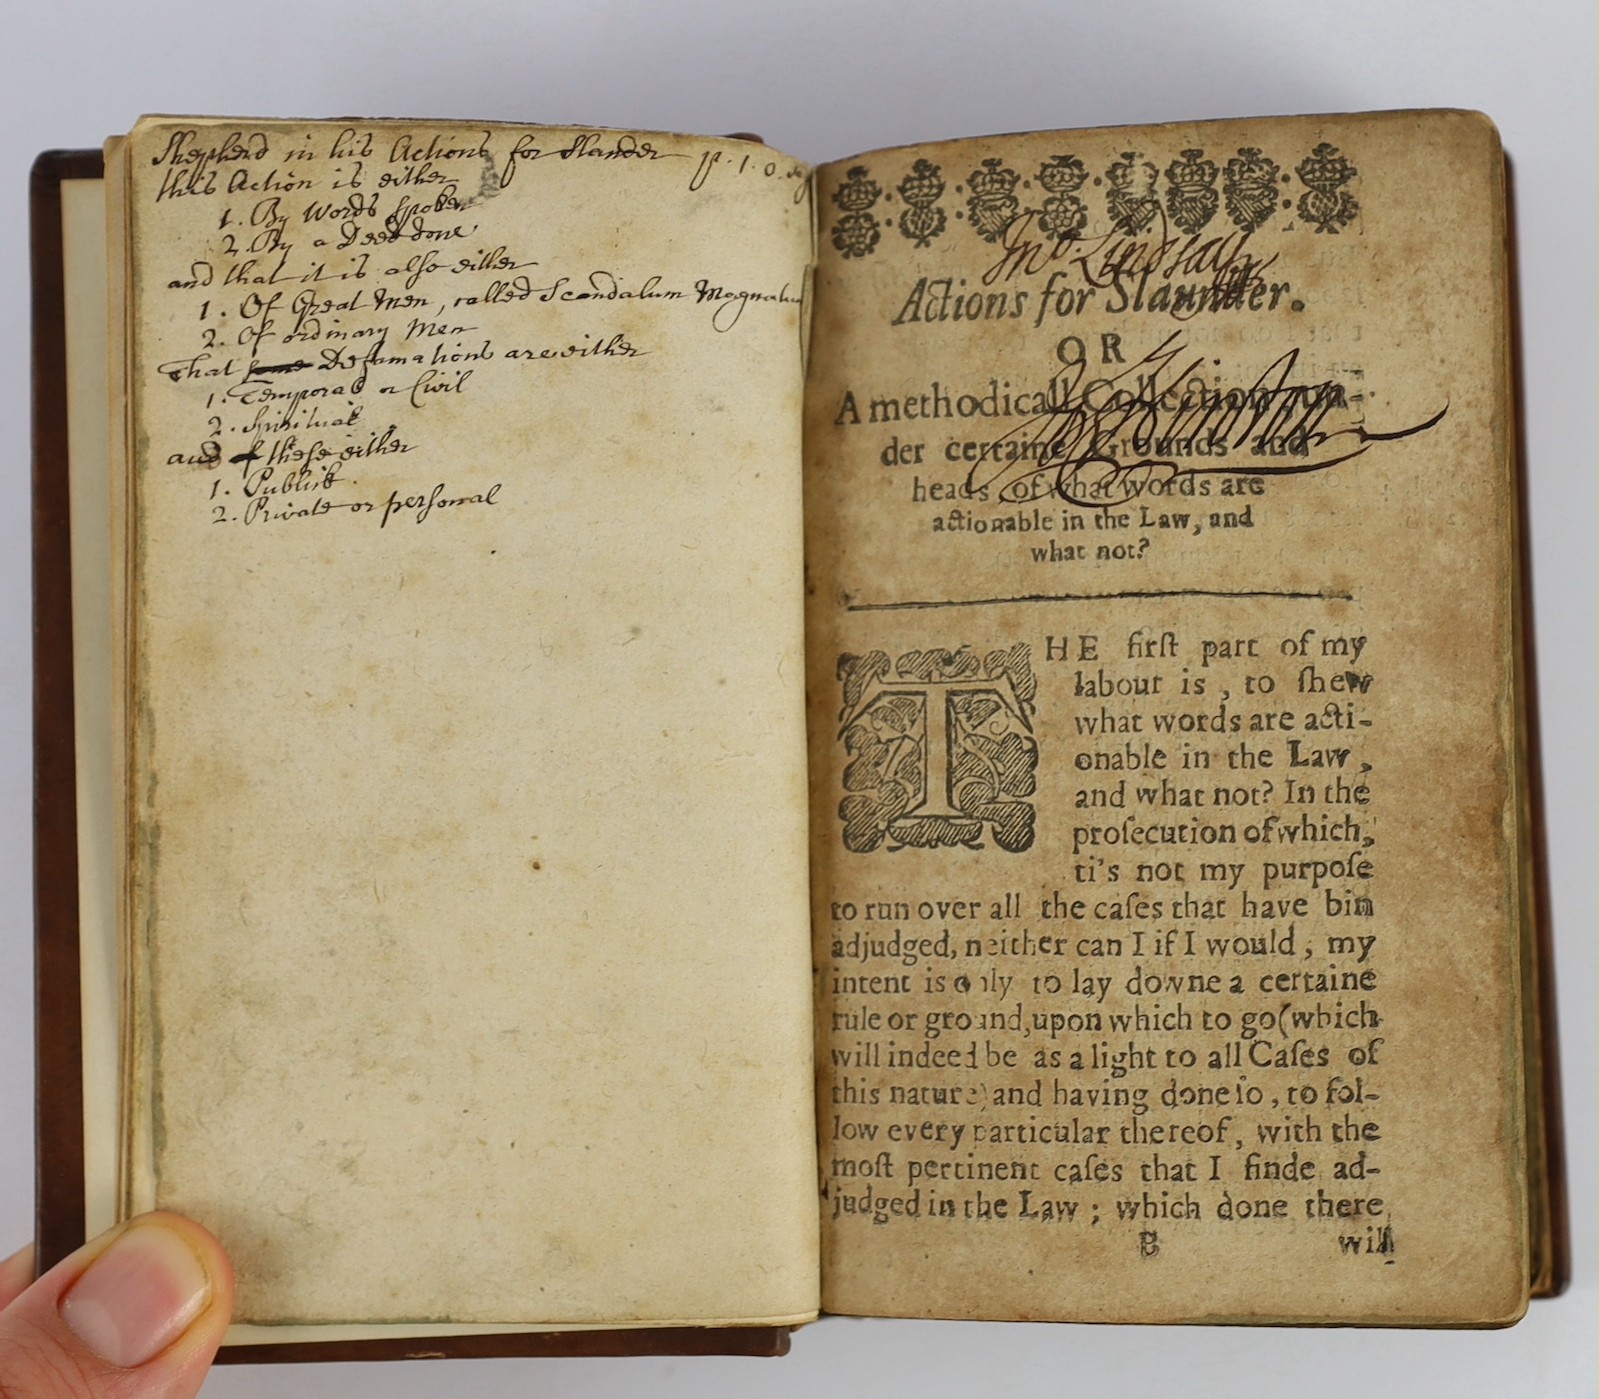 Shepherd in his Actions for Slander p. 1. 0.
this Action is either
1. By Words spoken
2. By a Deed done
and that it is also either
1. Of Great Men, called Scandalum Magnatum
2. Of ordinary Men
That some Defamations are either
1. Temporal or Civil
2. Spiritual
and of these either
1. Publick
2. Private or personal
Jno. Lindsay
Actions for Slaunder.
OR
A methodicall Collection un-
der certaine Grounds and
heads, of what words are
actionable in the Law, and
what not?
THE firſt part of my
labour is, to ſhew
what words are acti-
onable in the Law,
and what not? In the
proſecution of which,
ti's not my purpoſe
to run over all the caſes that have bin
adjudged, neither can I if I would, my
intent is only to lay downe a certaine
rule or ground, upon which to go (which
will indeed be as a light to all Caſes of
this nature) and having done ſo, to fol-
low every particular thereof, with the
moſt pertinent caſes that I finde ad-
judged in the Law; which done there
B will